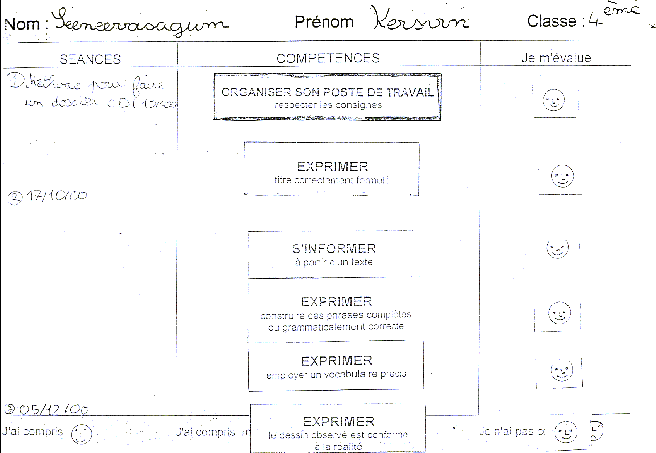 Nom : Seenevasagum Prénom Kersvin Classe : 4ème
SEANCES COMPETENCES Je m'évalue
pour faire
un dossier
ORGANISER SON POSTE DE TRAVAIL
respecter les consignes
EXPRIMER
titre correctement formulé
② 17/10/00
S'INFORMER
à partir d'un texte
EXPRIMER
construire des phrases complètes
ou grammaticalement correcte
EXPRIMER
employer un vocabulaire précis
③ 05/12/00
EXPRIMER
le dessin observé est conforme
à la réalité
J'ai compris J'ai compris Je n'ai pas